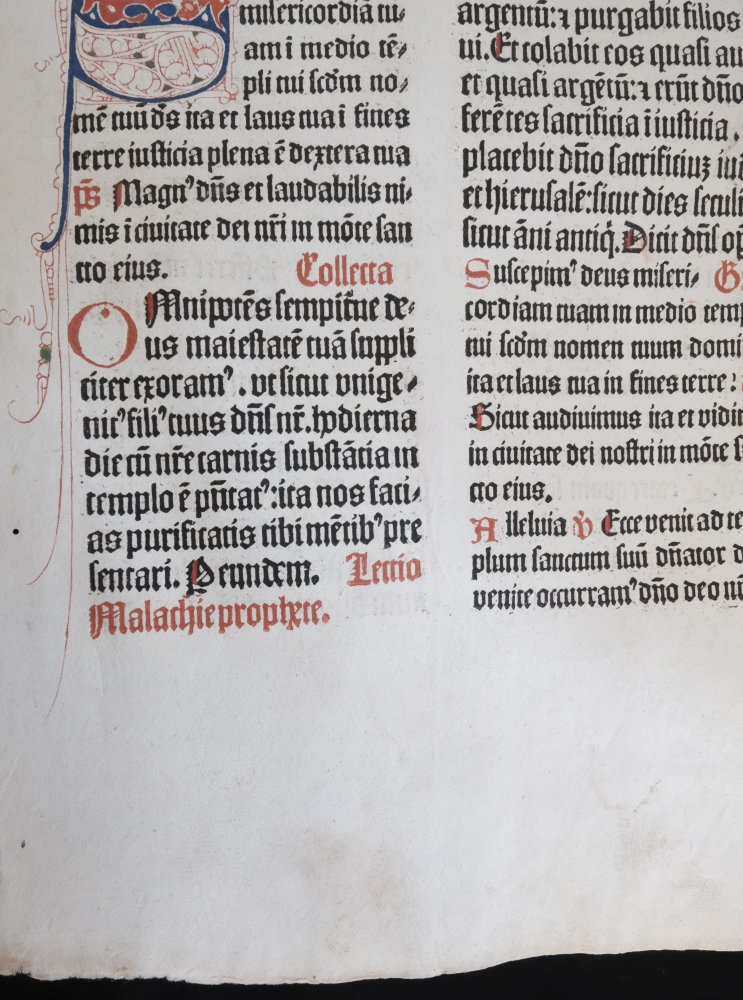 misericordiā tu⸗
am ī medio tē⸗
pli tui scd̄m no⸗
mē tuū ds̄ ita et laus tua ī fines
terre iusticia plena ē dextera tua
ps̄ Magnꝰ dn̄s et laudabilis ni⸗
mis ī ciuitate dei nr̄i in mōte san
cto eius. Collecta
OMnipotēs sempit̄ne de⸗
us maiestatē tuā suppli
citer exoramꝰ. vt sicut vnige⸗
nitꝰ filiꝰ tuus dn̄s nr̄. hodierna
die cū nr̄e carnis substātia in
templo ē pn̄tatꝰ: ita nos faci⸗
as purificatis tibi mētibꝰ pre
sentari. Per eundem. Lectio
Malachie prophete.
argentū: ⁊ purgabit filios
ui. Et colabit eos quasi au
et quasi argētū: ⁊ erūt dn̄o
ferētes sacrificia ī iusticia.
placebit dn̄o sacrificiuꝫ iu
et hierusalē: sicut dies seculi
sicut āni antiq̇. Dicit dn̄s op̄
Suscepimꝰ deus miseri⸗ G
cordiam tuam in mediō temp
tui scd̄m nomen tuum domi
ita et laus tua in fines terre:
Sicut audiuimus ita et vidi
in ciuitate dei nostri in mōte s
cto eius.
Alleluia ꝟ Ecce venit ad te
plum sanctum suū dn̄ator d
venite occurramꝰ dn̄o deo nr̄